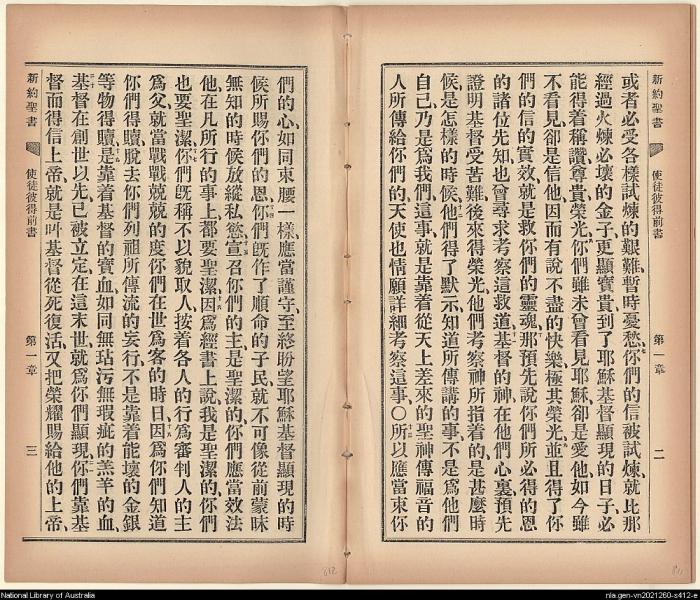 新約聖書 使徒彼得前書 第一章 二
或者必受各樣試煉的艱難、暫時憂愁、你們的信被試煉、就比那
經過火煉必壞的金子、更顯寶貴、到了耶穌基督顯現的日子、必
能得着稱讚尊貴榮光、你們雖未曾看見耶穌、卻是愛他、如今雖
不看見、卻是信他、因而有說不盡的快樂、極其榮光、並且得了你
們的信的實效、就是救你們的靈魂、那預先說你們所必得的恩
的諸位先知、也曾尋求考察這救道、基督的神、在他們心裏、預先
證明基督受苦難、後來得榮光、他們考察神所指着的是甚麼時
候、是怎樣的時候、他們得了默示、知道所傳講的事、不是爲他們
自己、乃是爲我們、這事就是靠着從天上差來的聖神傳福音的
人所傳給你們的、天使也情願詳細考察這事、〇所以應當束你
們的心、如同束腰一樣、應當謹守、至終盼望耶穌基督顯現的時
候所賜你們的恩、你們旣作了順命的子民、就不可像從前蒙昧
無知的時候、放縱私慾、宣召你們的主、是聖潔的、你們應當效法
他、在凡所行的事上、都要聖潔、因爲經書上說、我是聖潔的、你們
也要聖潔、你們旣稱不以貌取人、按着各人的行爲審判人的主
爲父、就當戰戰兢兢的度你們在世爲客的時日、因爲你們知道
你們得贖、脫去你們列祖所傳流的妄行、不是靠着能壞的金銀
等物得贖、是靠着基督的寶血、如同無玷污無瑕疵的羔羊的血、
基督在創世以先、已被立定、在這末世、就爲你們顯現、你們靠基
督而得信上帝、就是叫基督從死復活、又把榮耀賜給他的上帝、
新約聖書 使徒彼得前書 第一章 三
National Library of Australia
nla.gen-vn2021260-s412-e